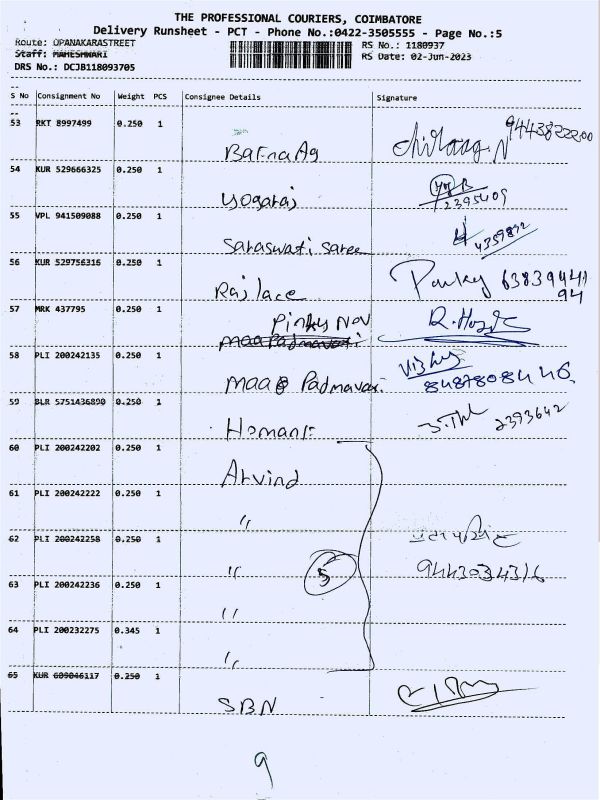 THE PROFESSIONAL COURIERS, COIMBATORE
Delivery Runsheet - PCT - Phone No.:0422-3505555 - Page No.:5
Route: OPANAKARASTREET
RS No.: 1180937
Staff: MAHESHWARI
RS Date: 02-Jun-2023
DRS No.: DCJB118093705
S No Consignment No Weight PCS Consignee Details Signature
53 RKT 8997499 0.250 1
54 KUR 529666325 0.250 1
Yogaraj
2395409
55 VPL 941509088 0.250 1
Saraswati saree
4359872
56 KUR 529756316 0.250 1
Raj lace
Pinky 6383944194
57 MRK 437795 0.250 1
Pinky Nov
58 PLI 200242135 0.250 1
maa Padmavati
8487808446
59 BLR 5751436890 0.250 1
Hemant
2393642
60 PLI 200242202 0.250 1
Arvind
61 PLI 200242222 0.250 1
"
62 PLI 200242258 0.250 1
" 5
9443034316
63 PLI 200242236 0.250 1
"
64 PLI 200232275 0.345 1
"
65 KUR 609046117 0.250 1
SBN
9